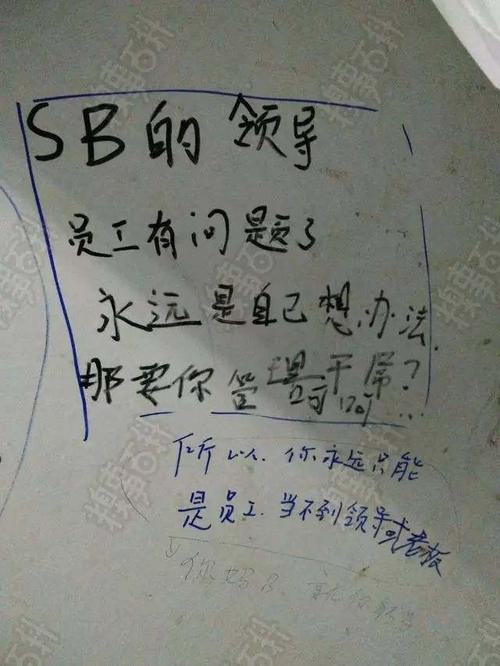 SB的领导
员工有问题了
永远是自己想办法.
那要你管理干屌?
呵呵...
所以.你永远只能
是员工.当不到领导或老板
你妈B